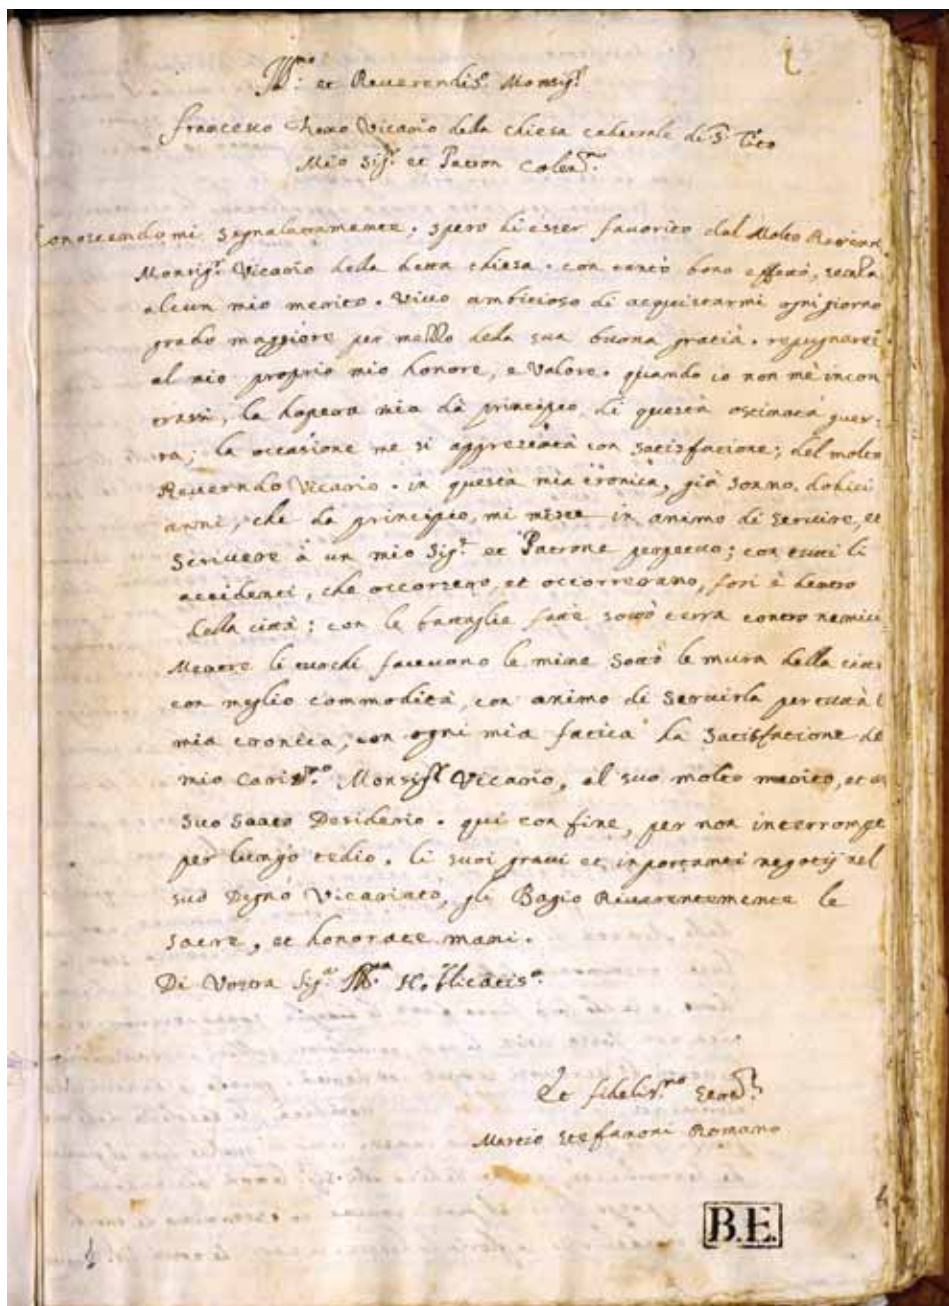 Ill.mo et Reuerendis.o Monsig.r
francesco Vicario della chiesa catterale di S. Tito
Mio Sig.r et Patron Colen.mo
onoscendomi segnalatamente, spero di esser fauorito dal Molto Reueren
Monsig.r Vicario della detta chiesa. con tanto bono effetto, senza
alcun mio merito. Viuo ambicioso di acquistarmi ogni giorno
grado maggiore per mezzo dela sua buona gratia. repugnarei
al mio proprio mio honore, e Valore. quando io non mè incon
trassi, la hopera mia dà principio di questa ostinata guer:
ra; la occasione me si apprezentà con satisfatione; del molto
Reuerndo Vicario. in questa mia cronica, già sonno dodici
anni, che da principio, mi misse in animo di seruire, et
scriuere à un mio Sig.r et Patrone perpetuo; con tutti li
accidenti, che occorsero, et occorrerano, fori è dentro
della città; con le battaglie fatte sotto terra contro nemici
Mentre li turchi faceuano le mine sotto le mura della citta
con meglio commodità, con animo di seruirla per tutta l
mia cronica, con ogni mia fatica la satisfatione de
mio Cariss.mo Monsig.r Vicario, al suo molto merito, et al
suo Santo Desiderio. qui con fine, per non interrompe
per lungo tedio. li suoi graui et inportanti negotij nel
suo Degno Vicariato, gli Bagio Riuerentemente le
sacre, et honorate mani.
Di Vostra Sig.ria Ill.ma
Et fidelis.mo Seru.r
Martio Stefanoni Romano
B.E.